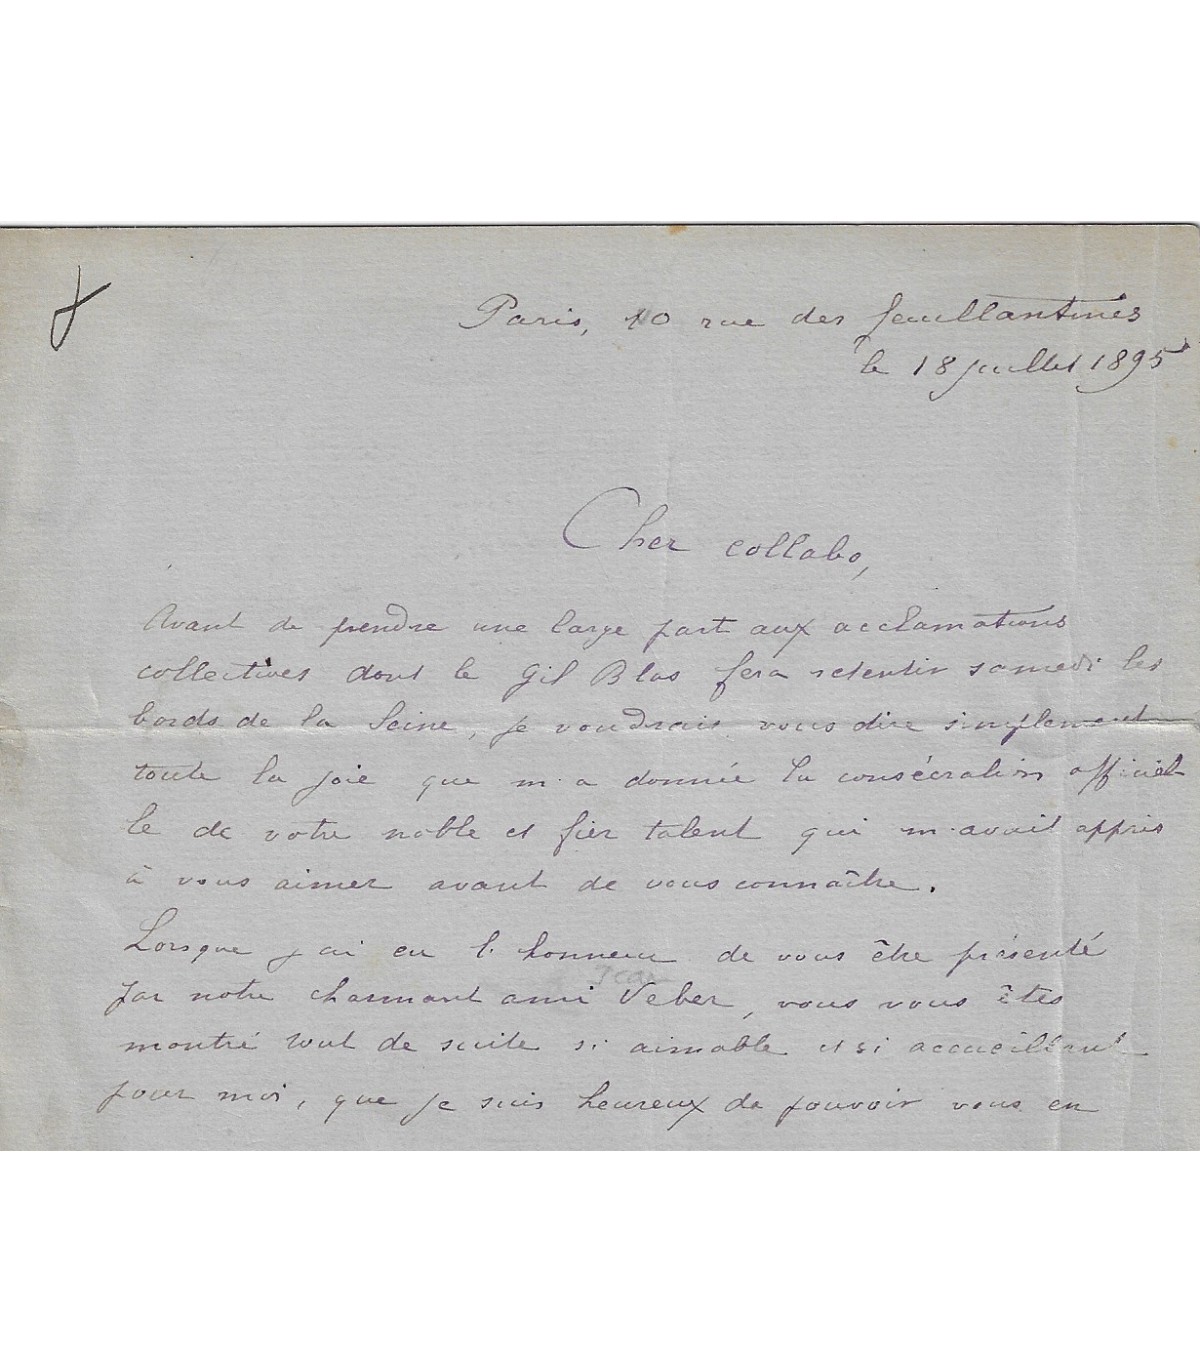 Paris, 10 rue des feuillantines
le 18 juillet 1895
Cher collabo,
Avant de prendre une large part aux acclamations
collectives dont le Gil Blas fera retentir samedi les
bords de la Seine, je voudrais vous dire simplement
toute la joie que m'a donnée la consécration officiel
le de votre noble et fier talent qui m'avait appris
à vous aimer avant de vous connaître.
Lorsque j'ai eu l'honneur de vous être présenté
par notre charmant ami Veber, vous vous êtes
montré tout de suite si aimable et si accueillant
pour moi, que je suis heureux de pouvoir vous en